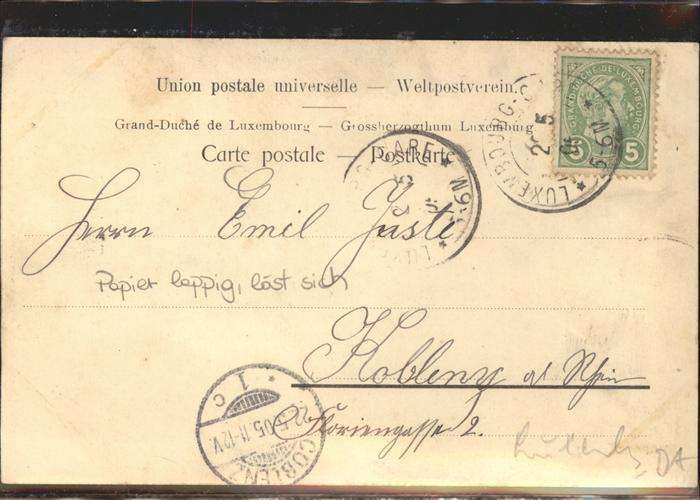 Union postale universelle — Weltpostverein.
Grand-Duché de Luxembourg — Grossherzogthum Luxemburg
Carte postale — Postkarte
GRAND DUCHÉ DE LUXEMBOURG
5 5
LUXEMBOURG-
GARE
Herrn Emil Juste
Papier lappig, löst sich
Koblenz a/ Rhein
Floriengasse 2.
COBLENZ
* 1 C
22.5.05.11-12V.